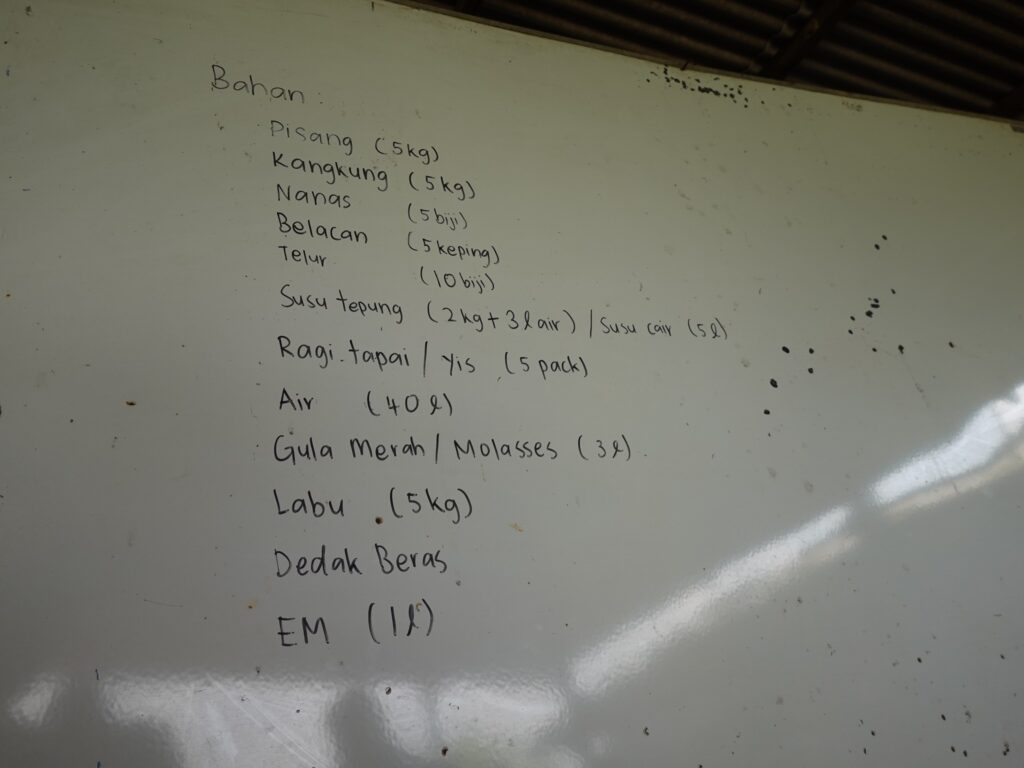 Bahan :
Pisang (5kg)
Kangkung (5kg)
Nanas (5 biji)
Belacan (5 keping)
Telur (10 biji)
Susu tepung (2kg + 3l air) / Susu cair (5l)
Ragi tapai / yis (5 pack)
Air (40 l)
Gula Merah / Molasses (3l)
Labu (5kg)
Dedak Beras
EM (1l)